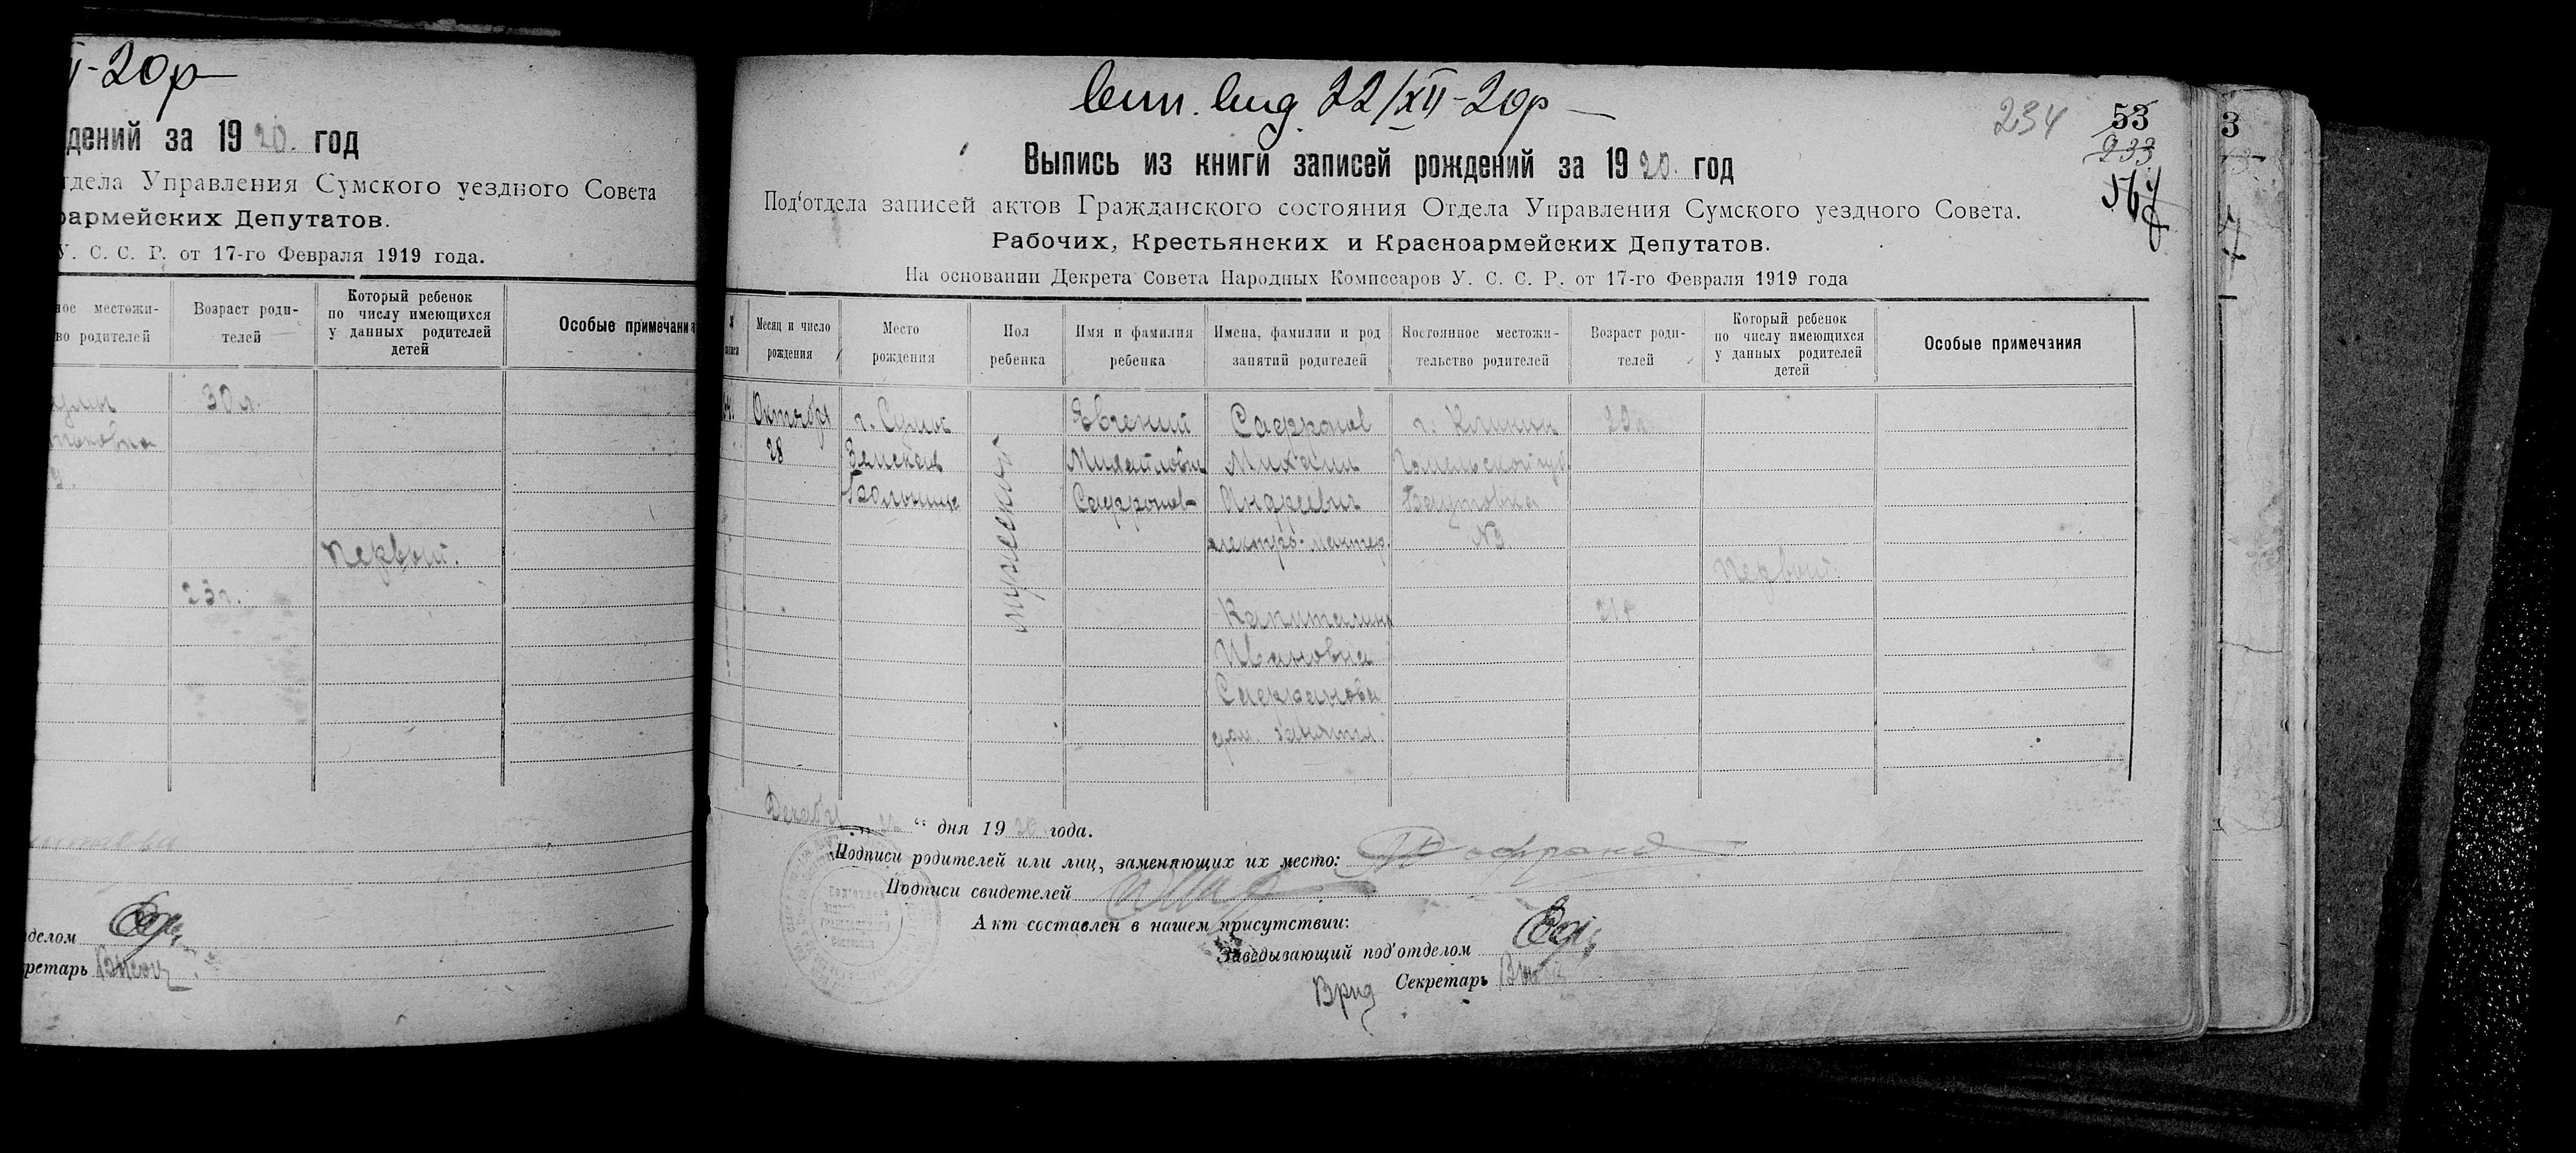 -20р
дений за 1920. год
тдела Управления Сумского уездного Совета
оармейских Депутатов.
У. С. С. Р. от 17-го Февраля 1919 года.
ное местожи-
во родителей
Возраст роди-
телей
Который ребенок
по числу имеющихся
у данных родителей
детей
Особые примечания
30 л.
Первый.
23 г.
делом
кретарь
22/XII-20р
234
53
233
567
Выпись из книги записей рождений за 1920. год
Под'отдела записей актов Гражданского состояния Отдела Управления Сумского уездного Совета.
Рабочих, Крестьянских и Красноармейских Депутатов.
На основании Декрета Совета Народных Комиссаров У. С. С. Р. от 17-го Февраля 1919 года
Месяц и число
рождения
Место
рождения
Пол
ребенка
Имя и фамилия
ребенка
Имена, фамилии и род
занятий родителей
Постоянное местожи-
тельство родителей
Возраст роди-
телей
Который ребенок
по числу имеющихся
у данных родителей
детей
Особые примечания
Октября
28
г. Сумы
Земская
Больница
мужеской
Евгений
Михайлович
Сафронов
Сафронов
Михаил
Андреевич
электро-монтер.
Капитолина
Ивановна
Сафронова
дом. занятия.
г. Клинцы
Гомельской губ
№9
Первый.
Декабря „22“ дня 1920 года.
Подписи родителей или лиц, заменяющих их место:
Подписи свидетелей
Акт составлен в нашем присутствии:
Заведывающий под'отделом
Врид Секретарь